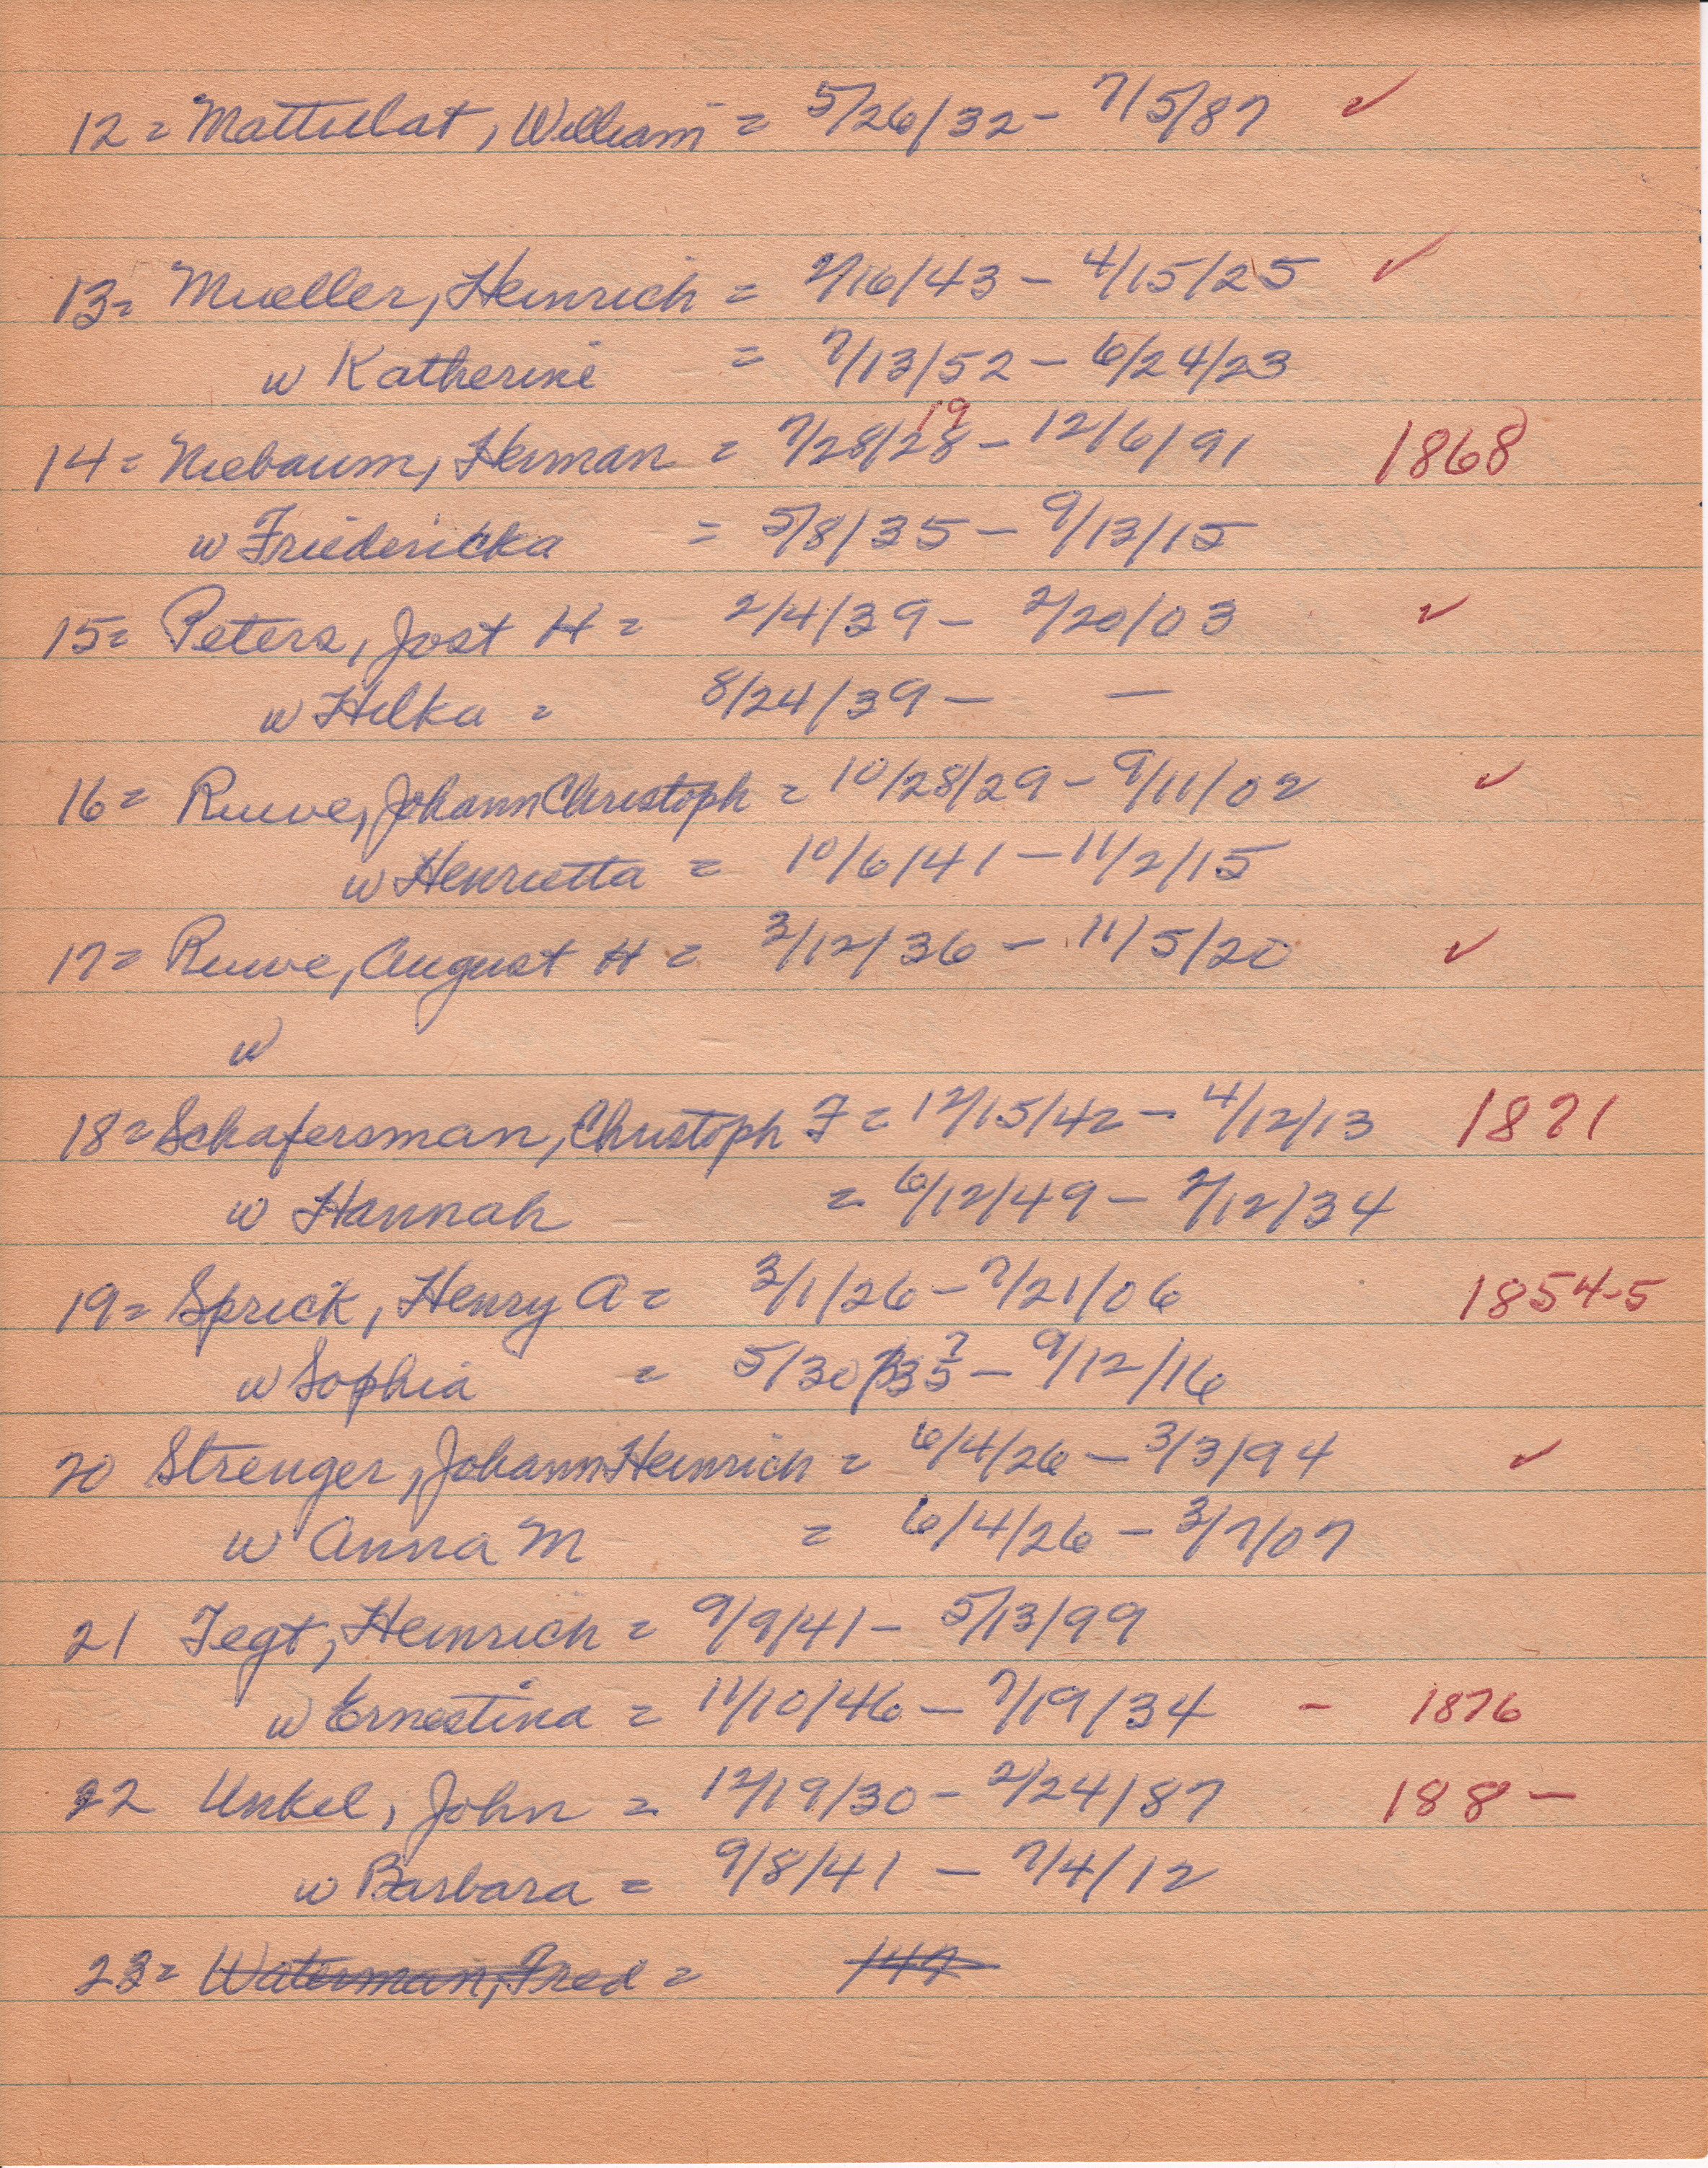 12 = Mattulat, William = 5/26/32 - 7/5/87 ✓
13 = Mueller, Heinrich = 2/16/43 - 4/15/25 ✓
w Katherine = 7/13/52 - 6/24/23
19
14 = Niebaum, Herman = 7/28/28 - 12/6/91 1868
w Friedericka = 5/8/35 - 9/13/15
15 = Peters, Jost H = 2/4/39 - 2/20/03 ✓
w Hilka = 8/24/39 - —
16 = Ruwe, Johann Christoph = 10/28/29 - 9/11/02 ✓
w Henrietta = 10/6/41 - 11/2/15
17 = Ruwe, August H = 3/12/36 - 11/5/20 ✓
w
18 = Schafersman, Christoph F = 12/15/42 - 4/12/13 1871
w Hannah = 6/12/49 - 2/12/34
19 = Sprick, Henry A = 3/1/26 - 7/21/06 1854-5
w Sophia = 5/30/35? - 9/12/16
20 Strenger, Johann Heinrich = 6/4/26 - 3/3/94 ✓
w Anna M = 6/4/26 - 3/7/07
21 Tegt, Heinrich = 9/9/41 - 5/13/99
w Ernestina = 11/10/46 - 7/19/34 - 1876
22 Unkel, John = 12/19/30 - 2/24/87 188-
w Barbara = 9/8/41 - 7/4/12
23 = Waterman, Fred = 147